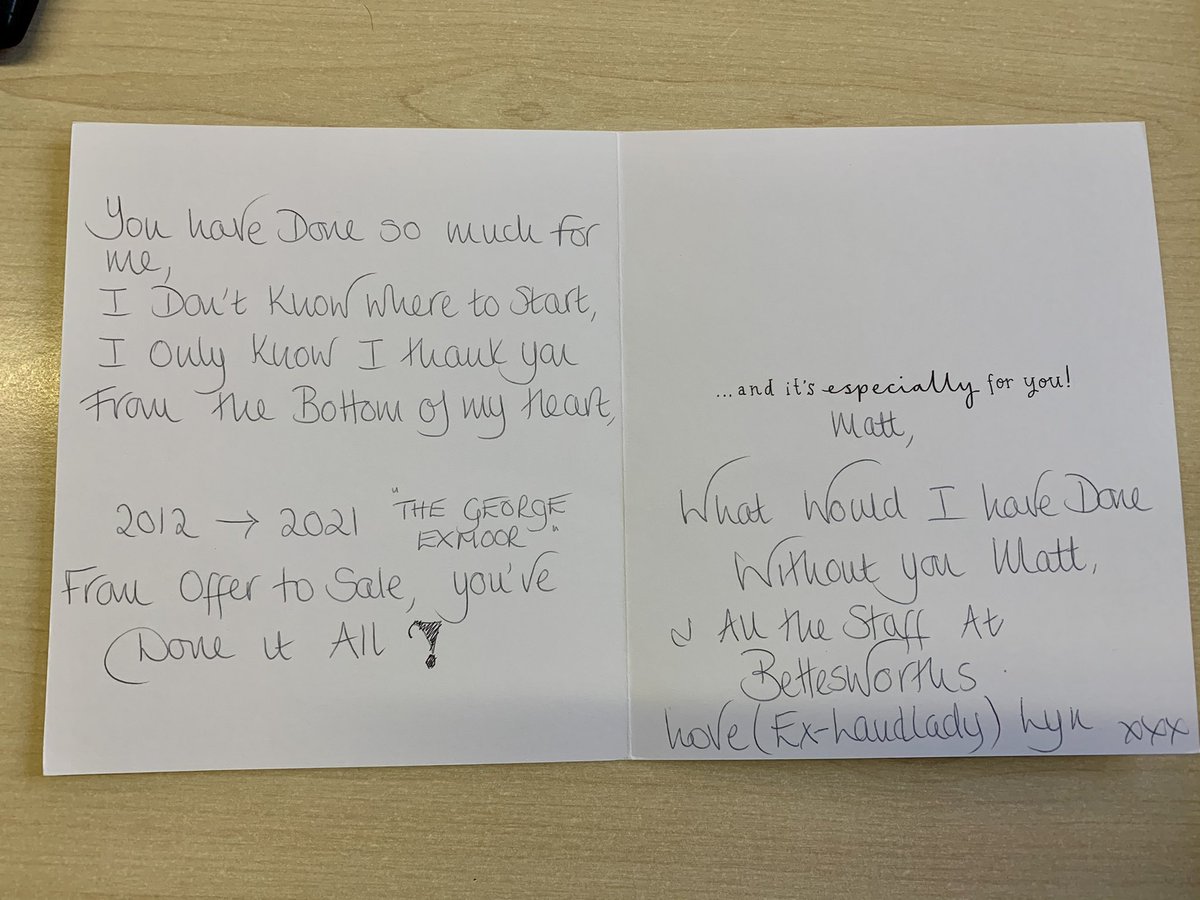 You have Done so much for
me,
I Don't Know where to Start,
I Only Know I thank you
From the Bottom of my Heart,
2012 → 2021 "THE GEORGE
EXMOOR"
From Offer to Sale, you've
Done it All !
...and it's especially for you!
Matt,
What Would I have Done
Without you Matt,
& All the Staff At
Bettesworths.
Love (Ex-Landlady) Lyn xxx